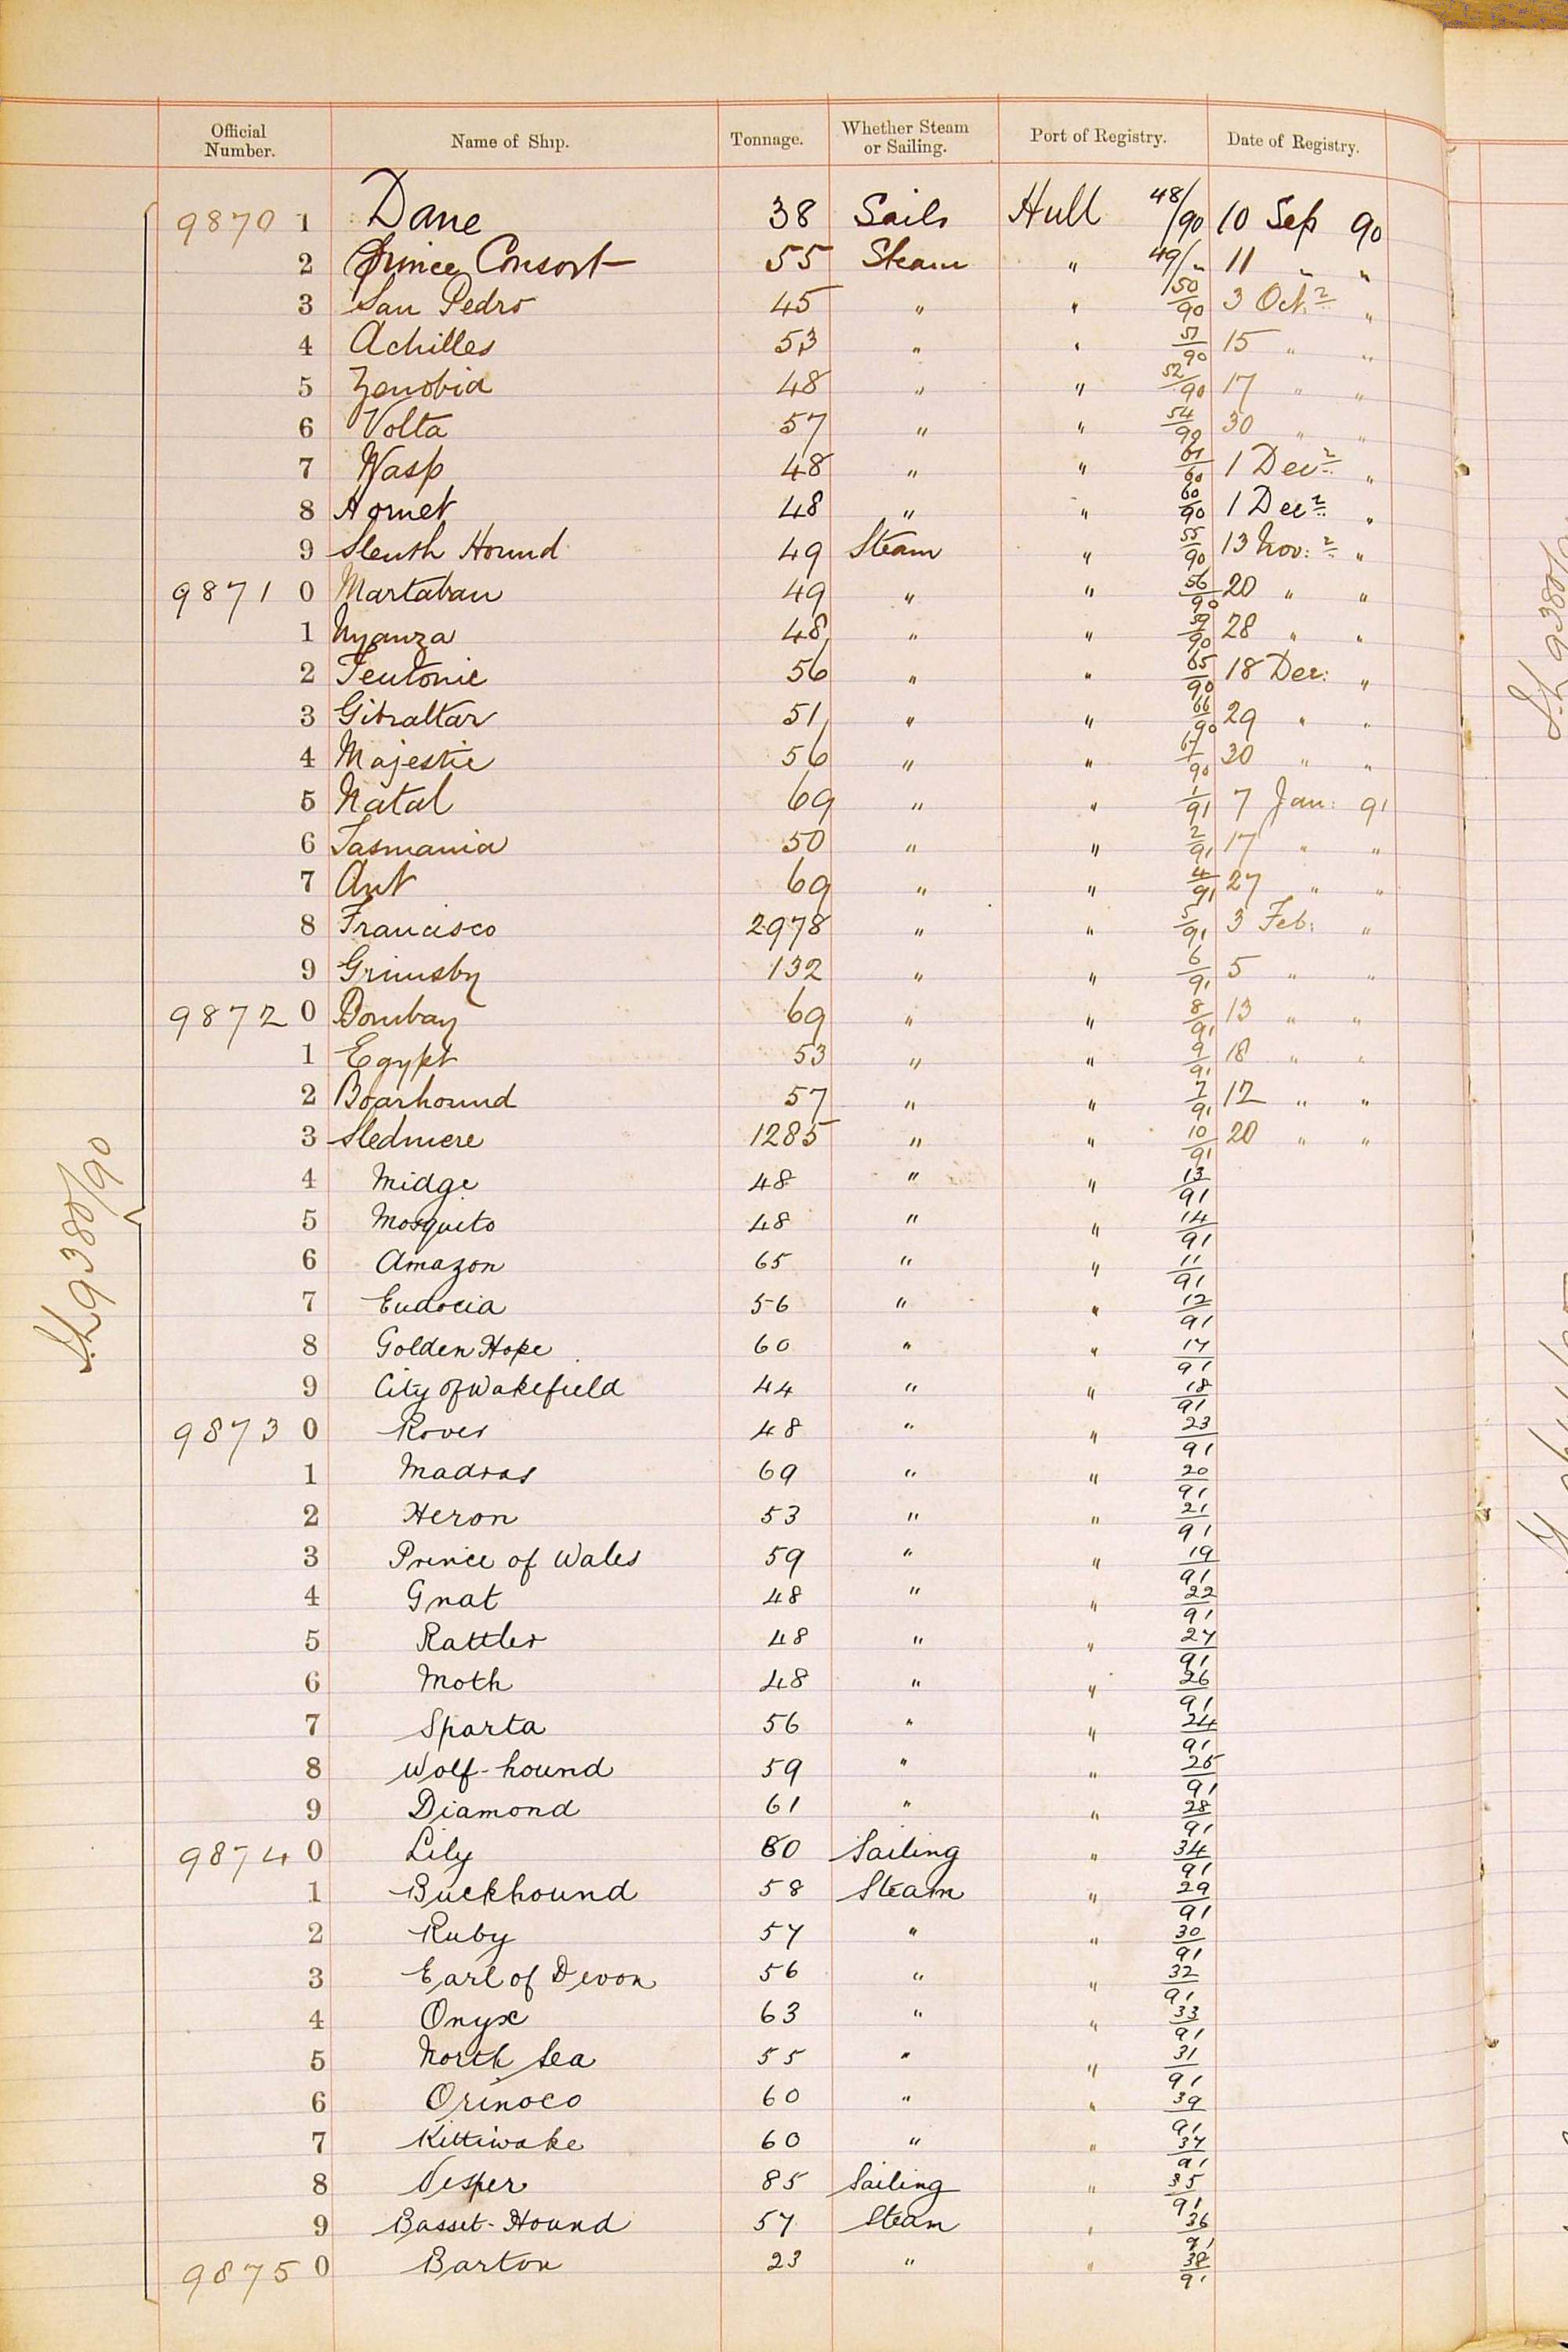 Official Number. Name of Ship. Tonnage. Whether Steam or Sailing. Port of Registry. Date of Registry.
9870 1 Dane 38 Sails Hull 48/90 10 Sep 90
2 Prince Consort 55 Steam " 49/" 11 " "
3 San Pedro 45 " " 50/90 3 Oct: "
4 Achilles 53 " " 51/90 15 " "
5 Zenobia 48 " " 52/90 17 " "
6 Volta 57 " " 54/90 30 " "
7 Wasp 48 " " 1 Dec "
8 Hornet 48 " " 60/90 1 Dec "
9 Sleuth Hound 49 Steam " 55/90 13 Nov: "
9871 0 Martaban 49 " " 56/90 20 " "
1 Nyanza 48 " " 59/90 28 " "
2 Teutonic 56 " " 65/90 18 Dec: "
3 Gibraltar 51 " " 66/90 29 " "
4 Majestic 56 " " 67/90 30 " "
5 Natal 69 " " 1/91 7 Jan: 91
6 Tasmania 50 " " 2/91 17 " "
7 Ant 69 " " 4/91 27 " "
8 Francisco 2978 " " 5/91 3 Feb: "
9 Grimsby 132 " " 6/91 5 " "
9872 0 Bombay 69 " " 8/91 13 " "
1 Egypt 53 " " 9/91 18 " "
2 Boarhound 57 " " 7/91 12 " "
3 Sledmere 1285 " " 10/91 20 " "
4 Midge 48 " " 13/91
5 Mosquito 48 " " 14/91
6 Amazon 65 " " 11/91
7 Eudocia 56 " " 12/91
8 Golden Hope 60 " " 17/91
9 City of Wakefield 44 " " 18/91
9873 0 Rover 48 " " 23/91
1 Madras 69 " " 20/91
2 Heron 53 " " 21/91
3 Prince of Wales 59 " " 19/91
4 Gnat 48 " " 22/91
5 Rattler 48 " " 27/91
6 Moth 48 " " 26/91
7 Sparta 56 " " 24/91
8 Wolf-hound 59 " " 25/91
9 Diamond 61 " " 28/91
9874 0 Lily 80 Sailing " 34/91
1 Buckhound 58 Steam " 29/91
2 Ruby 57 " " 30/91
3 Earl of Devon 56 " " 32/91
4 Onyx 63 " " 33/91
5 North Sea 55 " " 31/91
6 Orinoco 60 " " 39/91
7 Kittiwake 60 " " 37/91
8 Vesper 85 Sailing " 35/91
9 Basset-Hound 57 Steam " 36/91
9875 0 Barton 23 " " 38/91
9380/90